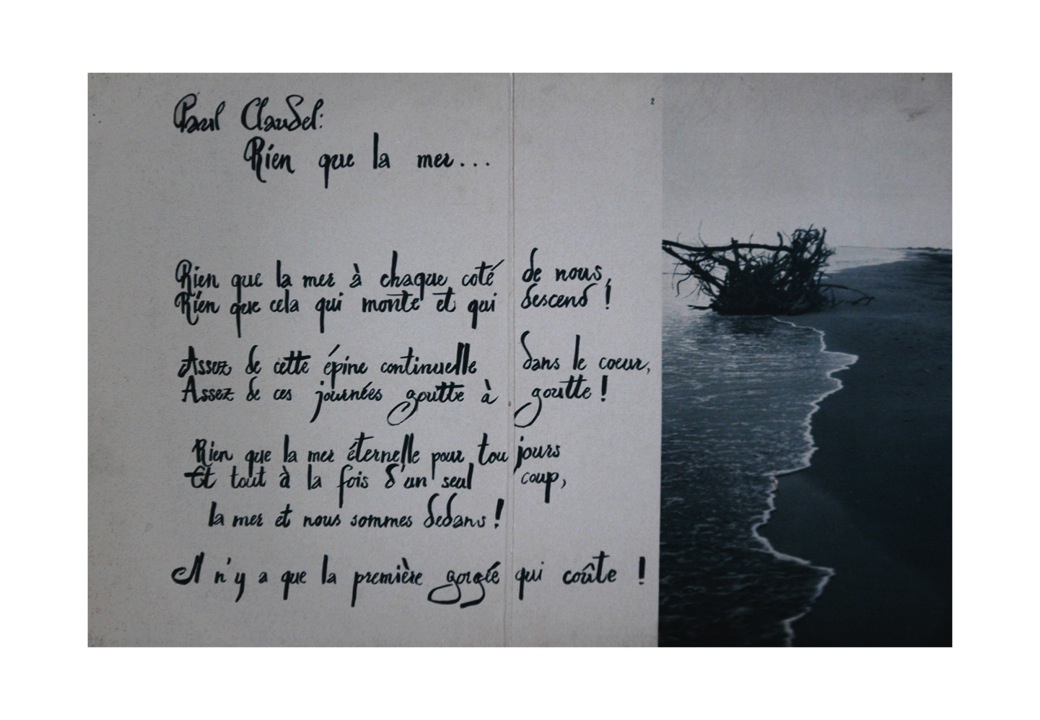 Paul Claudel:
Rien que la mer...
2
Rien que la mer à chaque coté de nous,
Rien que cela qui monte et qui descend !
Assez de cette épine continuelle dans le coeur,
Assez de ces journées goutte à goutte !
Rien que la mer éternelle pour toujours
Et tout à la fois d'un seul coup,
la mer et nous sommes dedans !
Il n'y a que la première gorgée qui coûte !